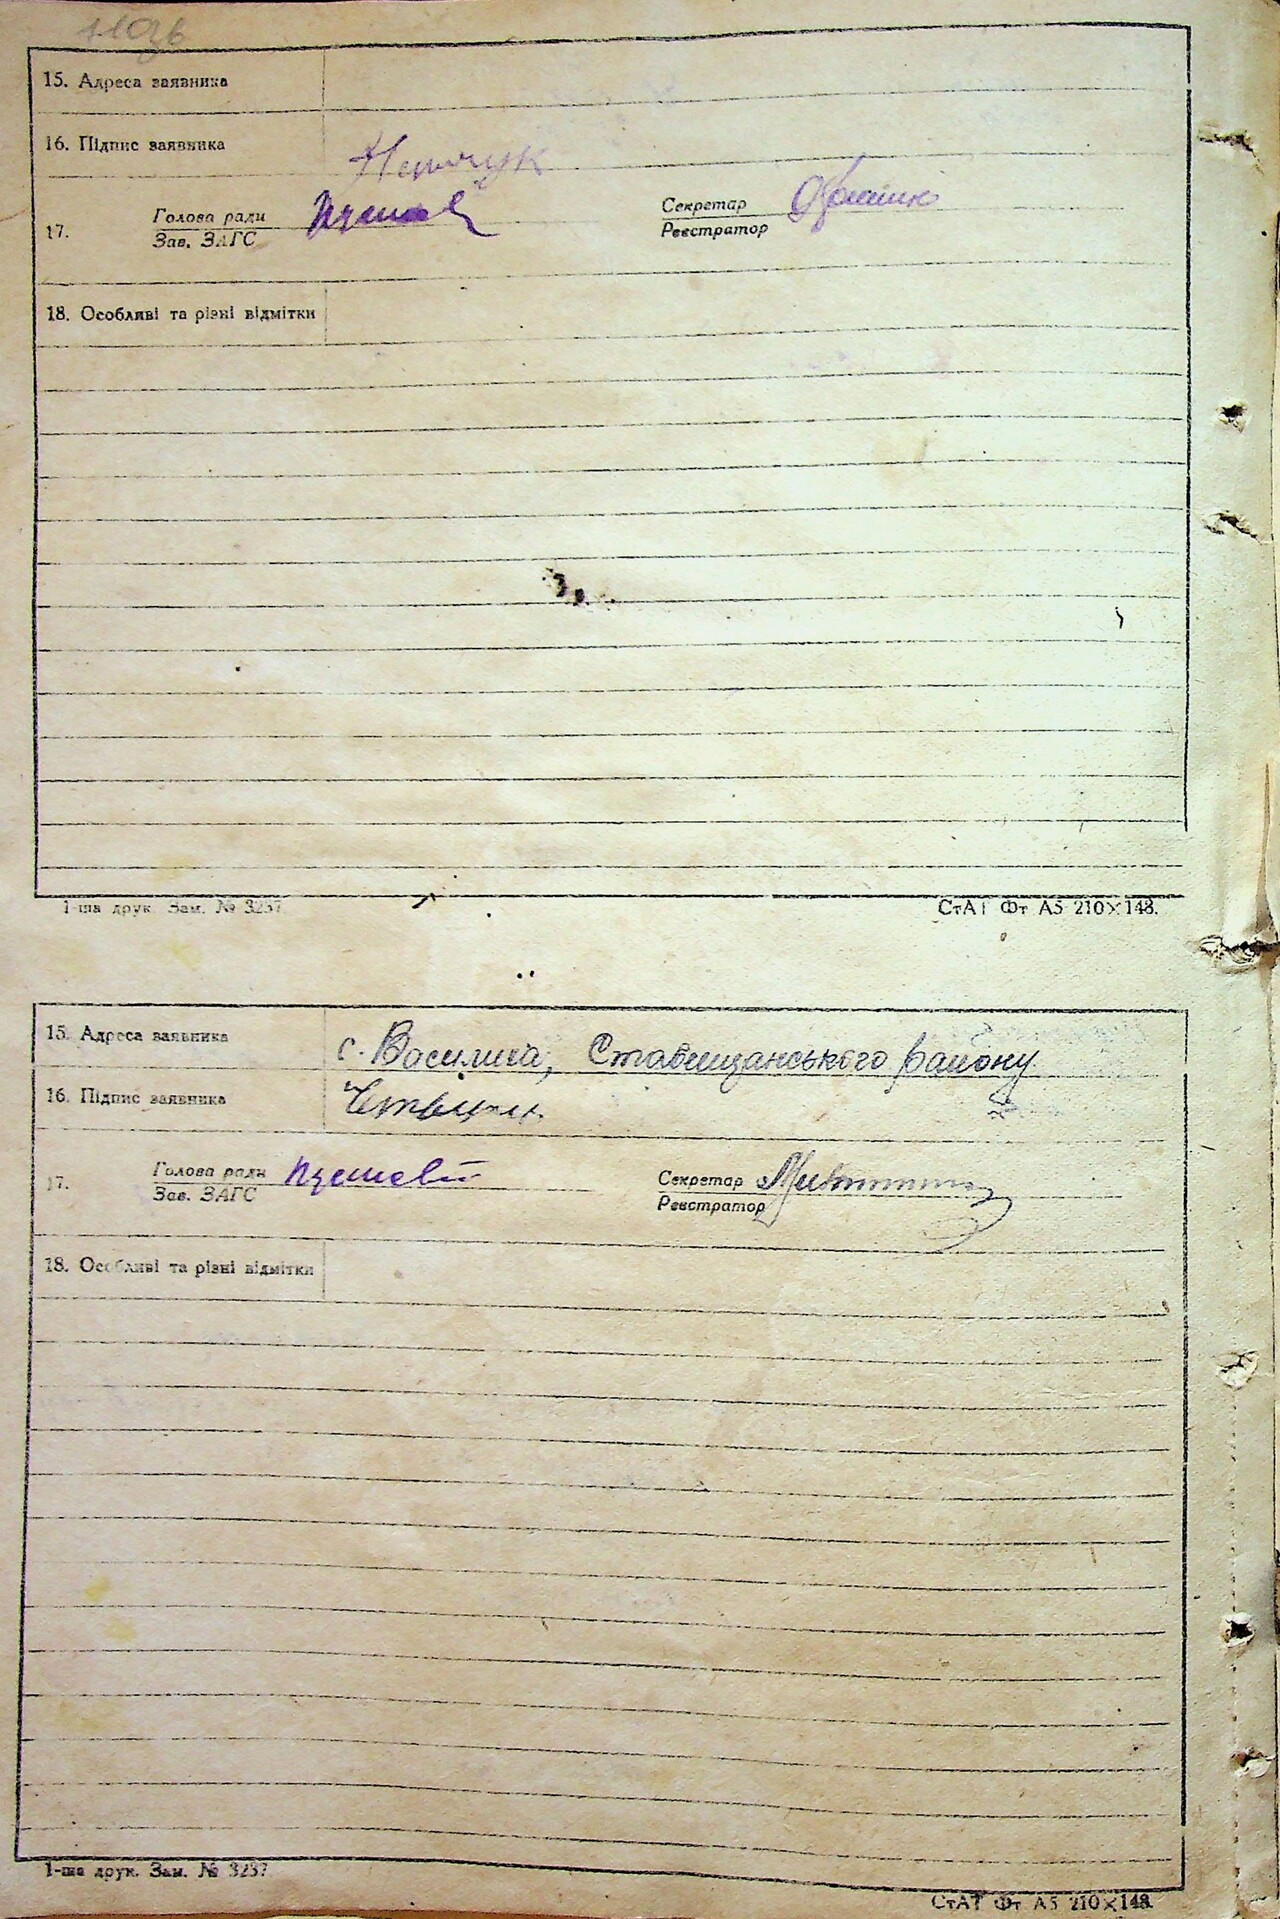 110зв
15. Адреса заявника
16. Підпис заявника
17. Голова ради
Зав. ЗАГС
Секретар
Реєстратор
18. Особливі та різні відмітки
1-ша друк. Зам. № 3237
СтАТ Фт А5 210×148.
15. Адреса заявника с. Василиха, Ставищанського району
16. Підпис заявника
17. Голова ради
Зав. ЗАГС
Секретар
Реєстратор
18. Особливі та різні відмітки
1-ша друк. Зам. № 3237
СтАТ Фт А5 210×148.